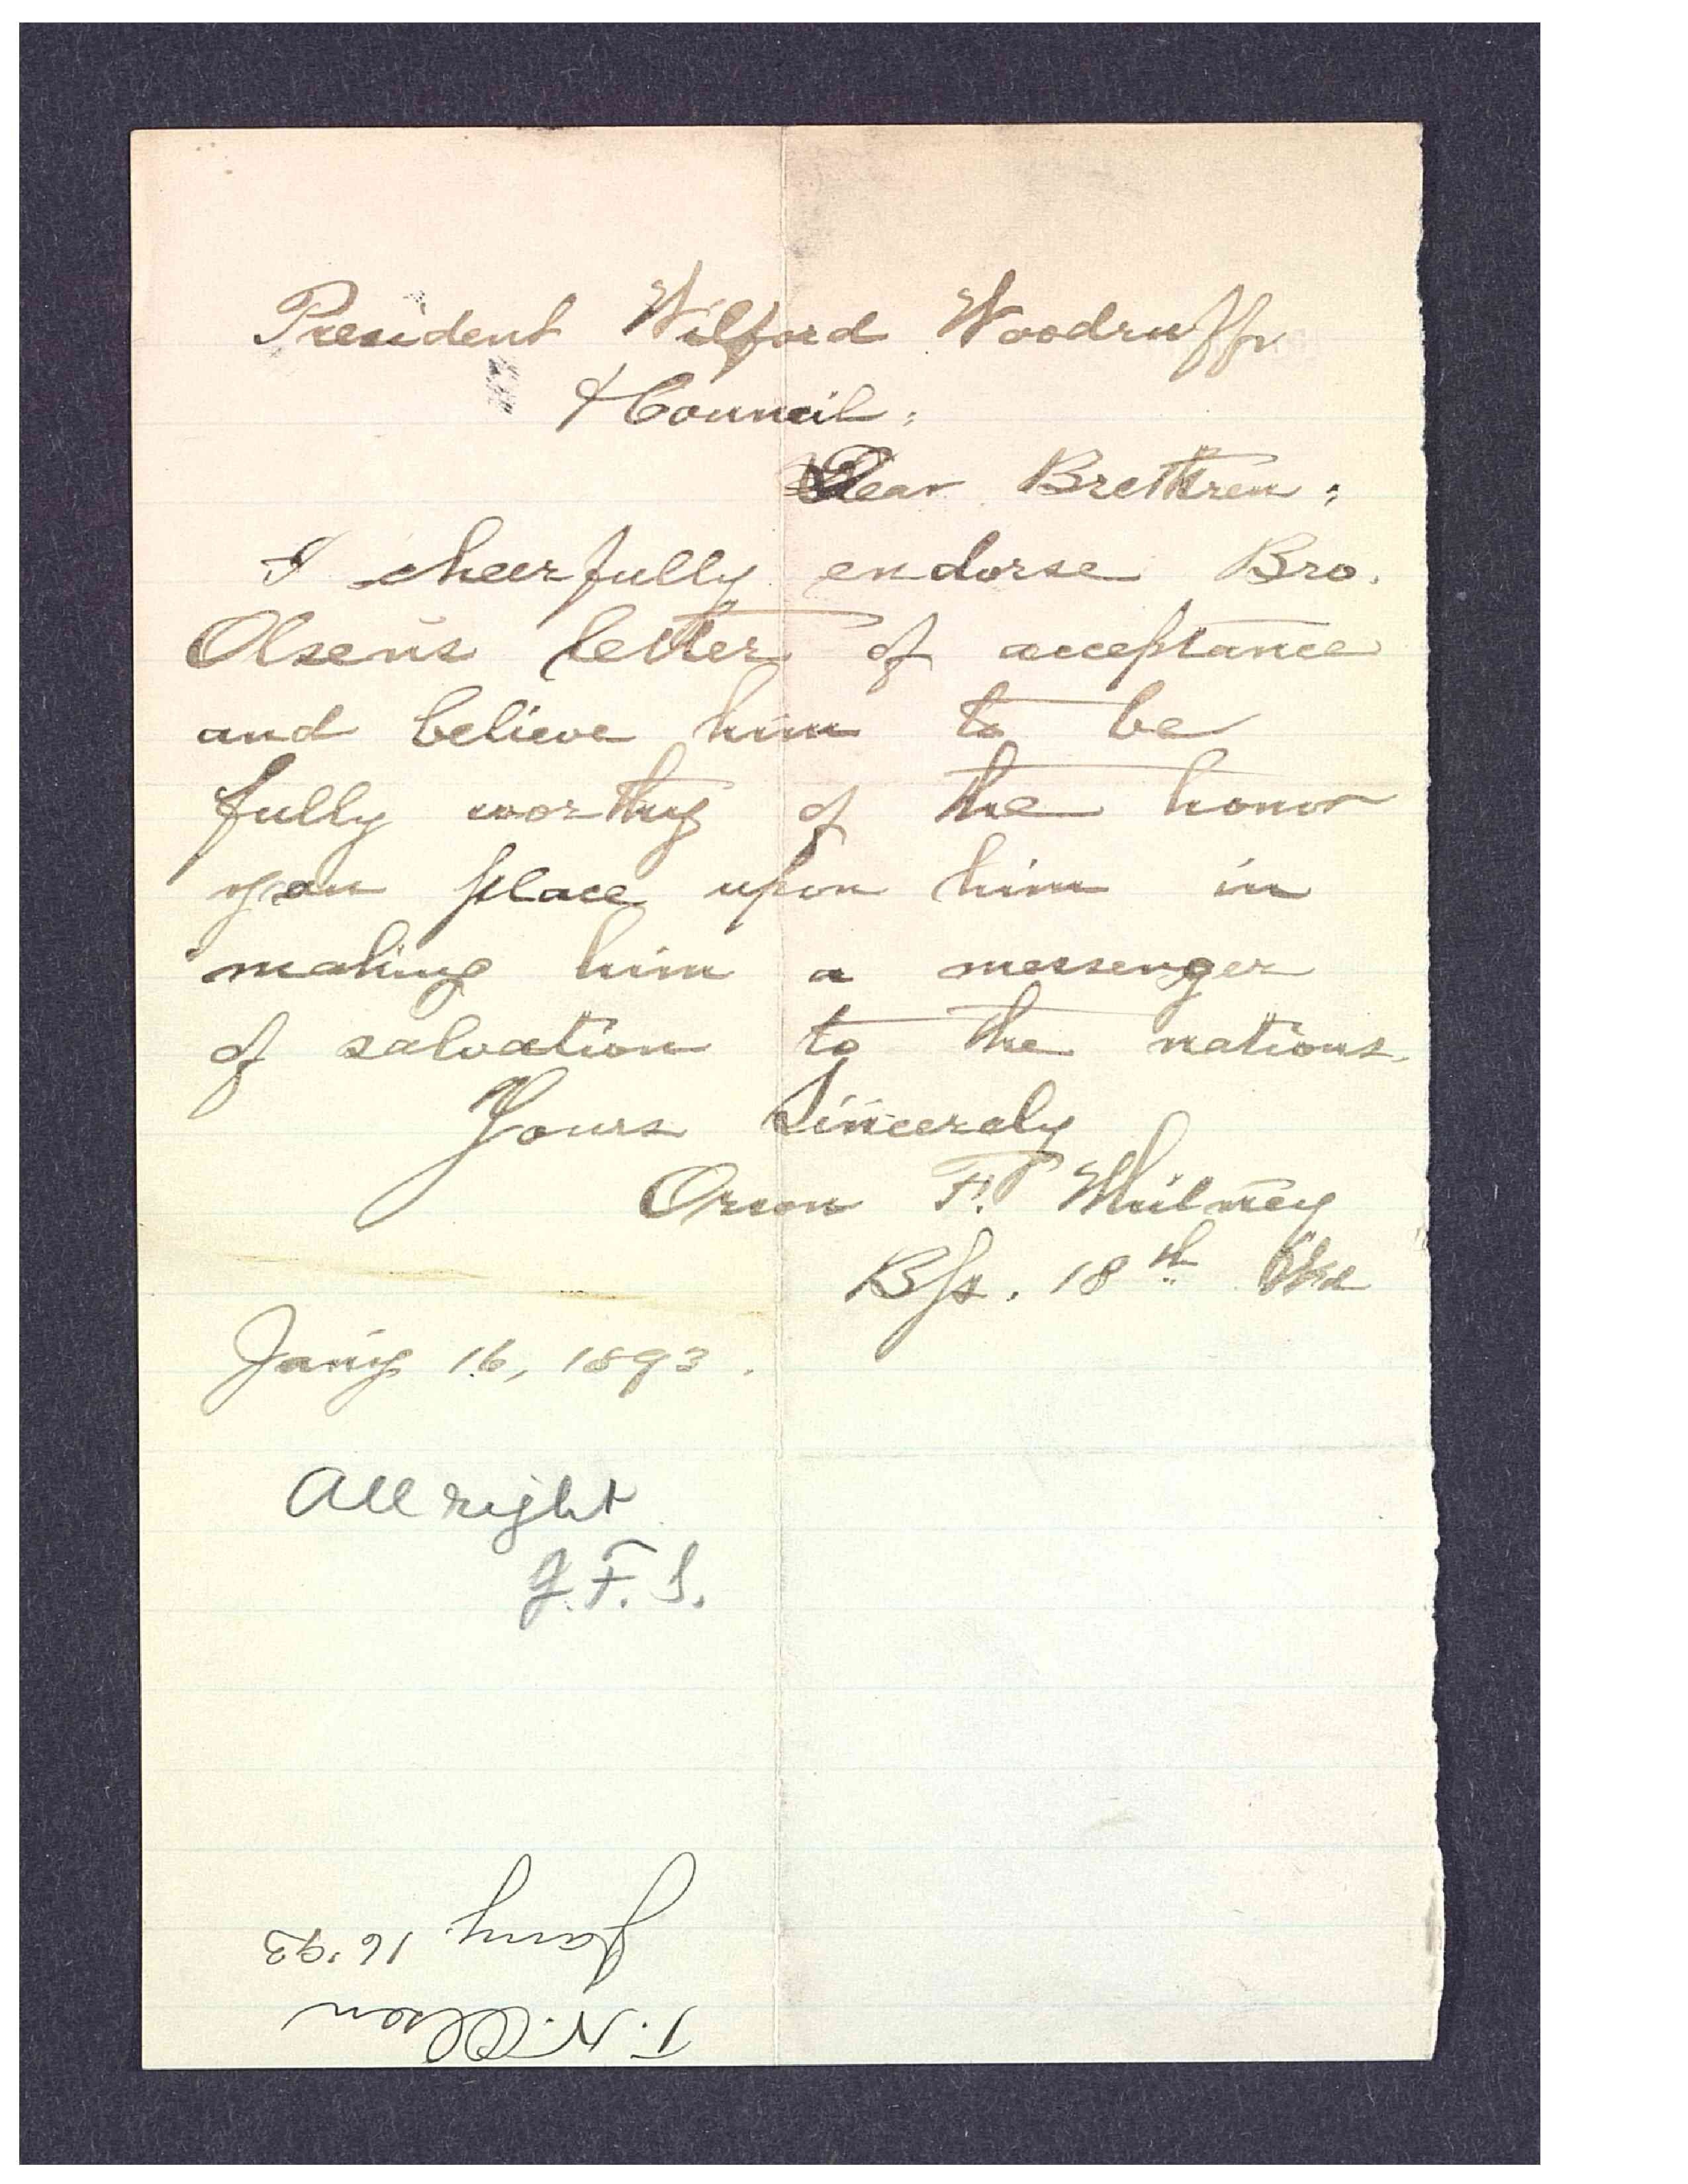 President Wilford Woodruff
& Council:
Dear Brethren:
I cheerfully endorse Bro.
Olsen's letter of acceptance
and believe him to be
fully worthy of the honor
you place upon him in
making him a messenger
of salvation to the nations.
Yours Sincerely
Orson F. Whitney
Bp. 18th Wd
Jan'y 16, 1893.
All right
J. F. S.
T. N. Olsen
Jany. 16 '93